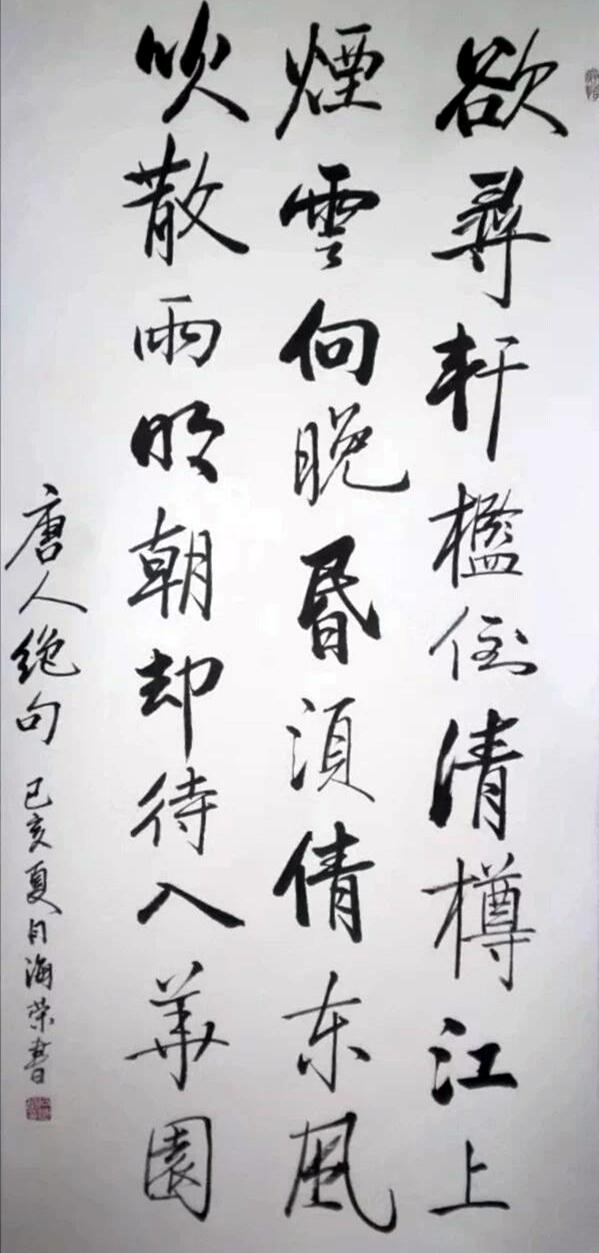 欲尋軒檻倒清樽江上
煙雲向晚昏須倩东風
吹散雨明朝却待入華園
唐人绝句
己亥夏月海荣書